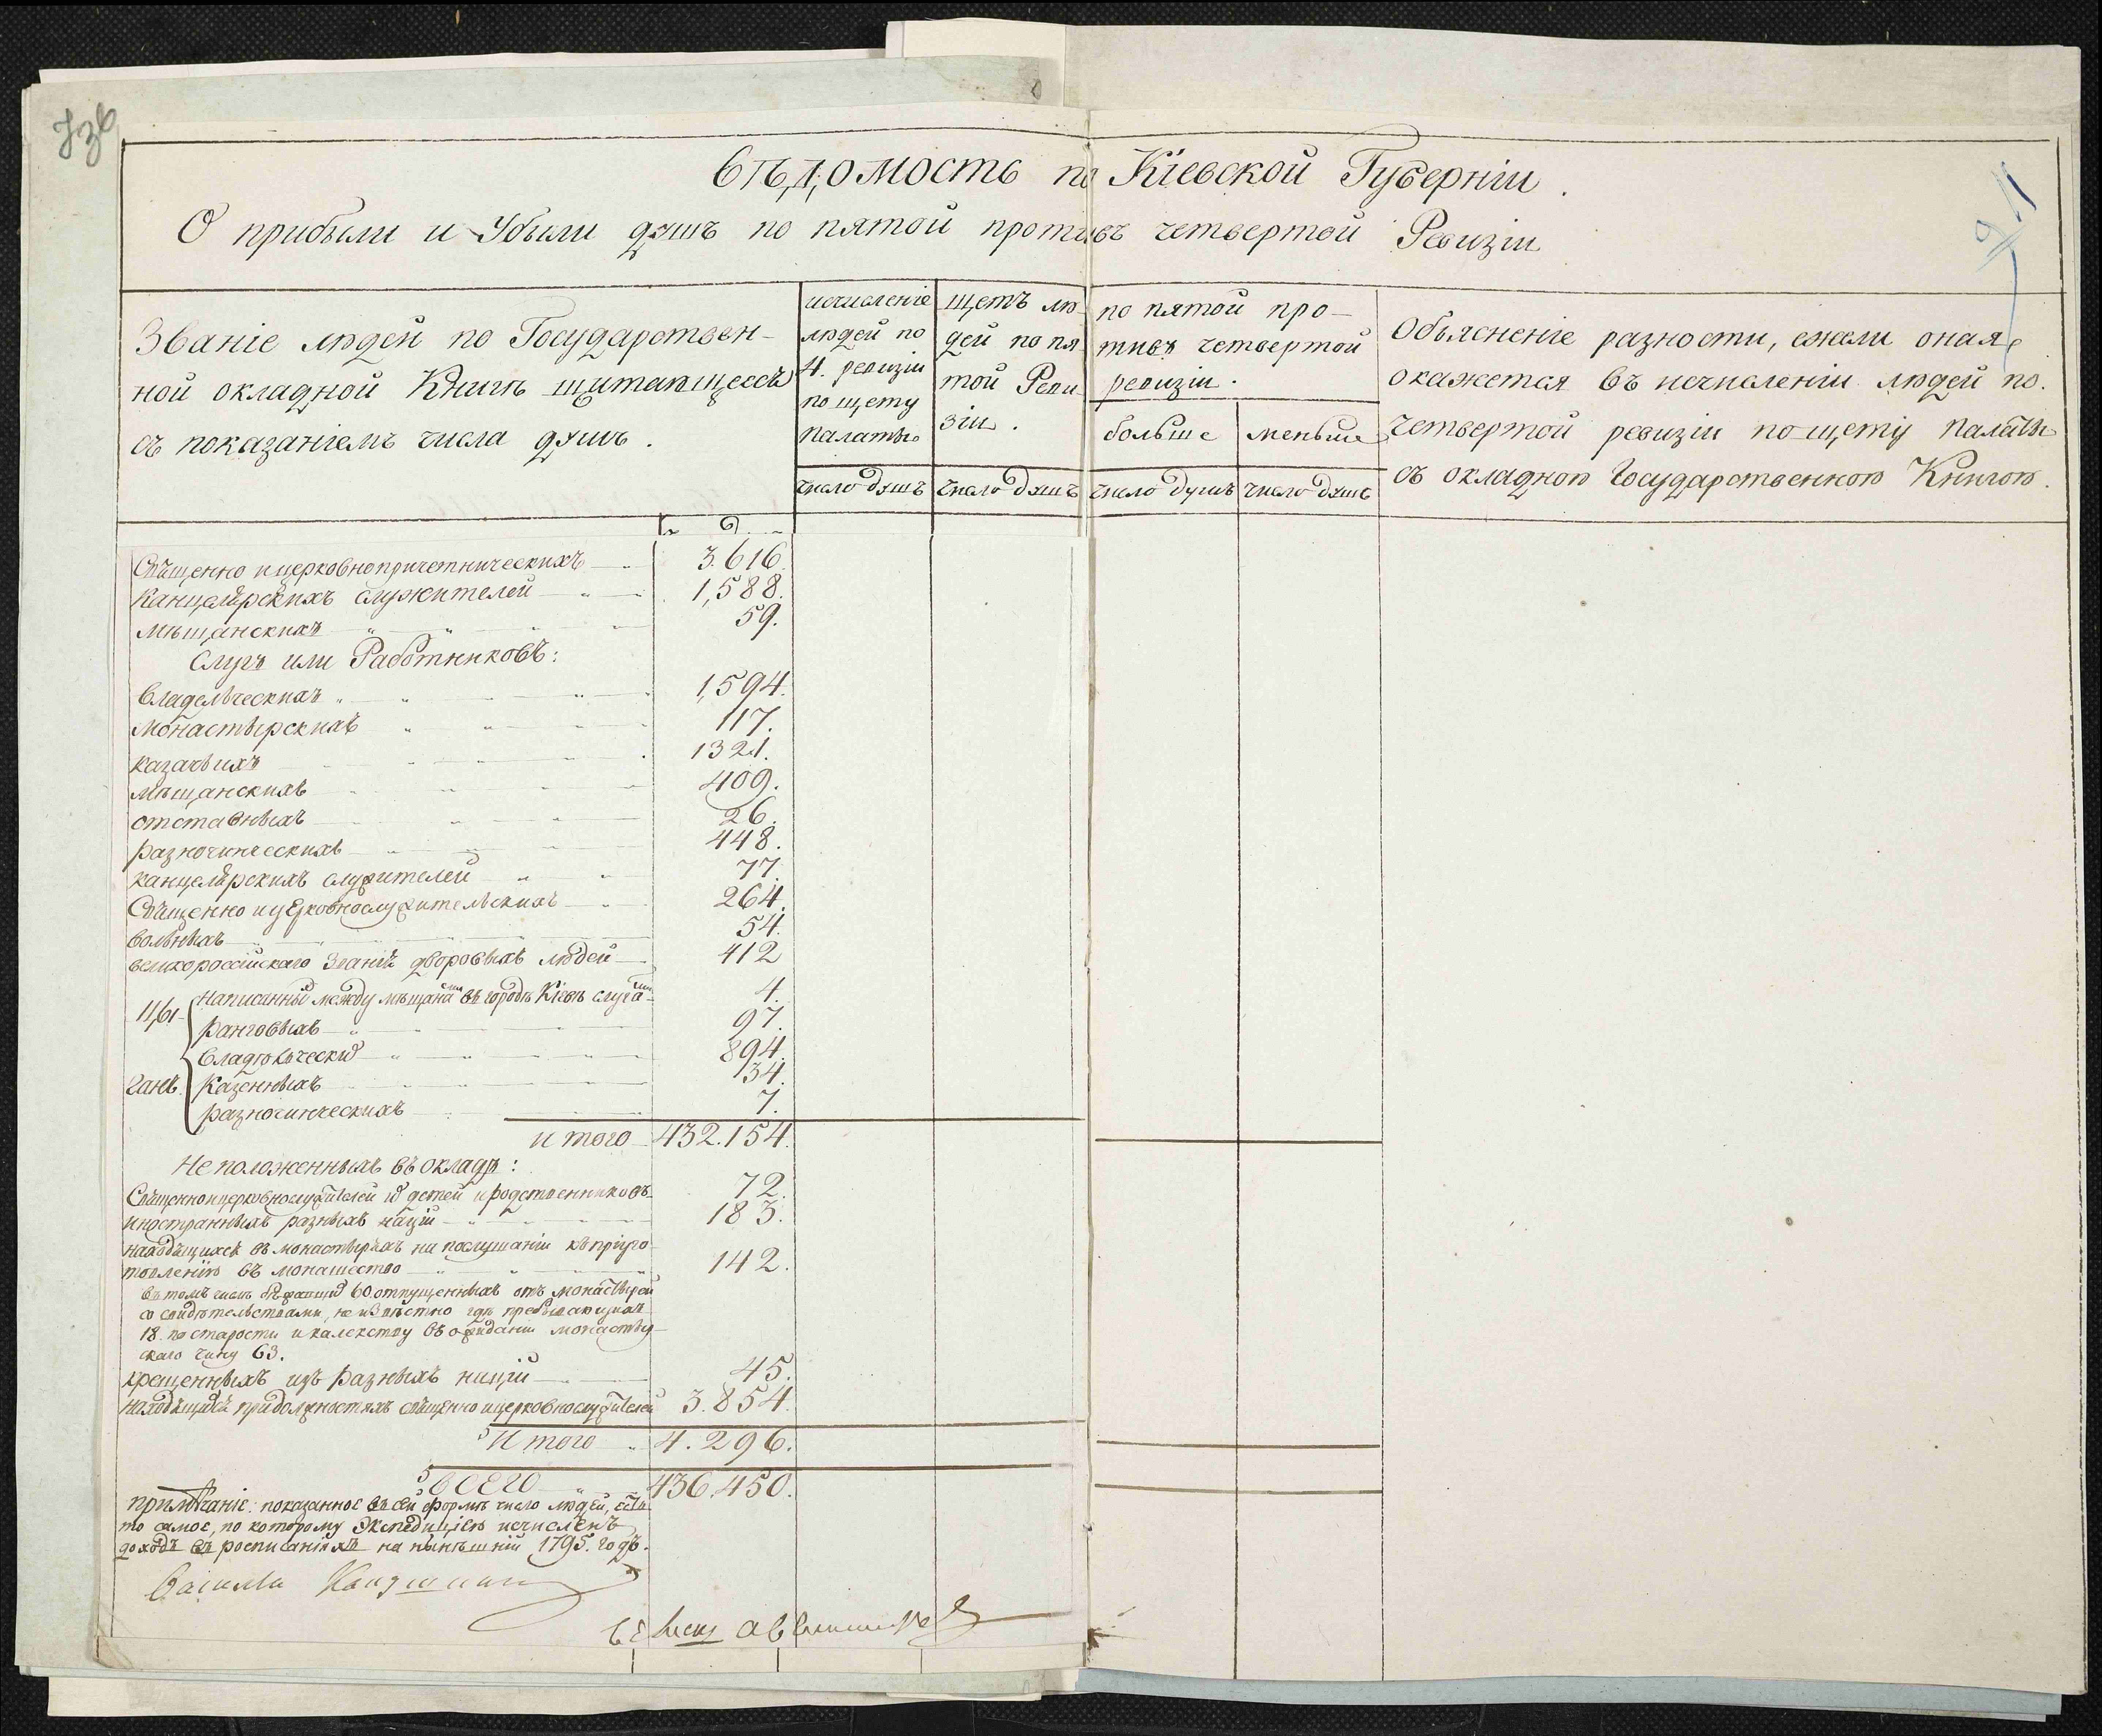 736
Вѣдомость по Кіевской Губерніи.
О прибыли и Убыли душъ по пятой противъ четвертой Ревизіи
Званіе людей по Государствен-
ной окладной Книгѣ щитающееся
съ показаніемъ числа душъ.
исчисленіе
людей по
4. ревизіи
по щету
палаты
число душъ
щетъ лю-
дей по пя-
той Реви-
зіи.
число душъ
по пятой про-
тивъ четвертой
ревизіи.
больше меньше
число душъ число душъ
Объясненіе разности, ежели оная
окажется въ исчисленіи людей по
четвертой ревизіи по щету палаты
съ окладною Государственною Книгою.
Священно и церковнопричетническихъ 3.616.
Канцелярскихъ служителей 1,588.
мѣщанскихъ 59.
Слугъ или Работниковъ:
Владельческихъ 1,594.
монастырскихъ 117.
казачьихъ 1321.
мѣщанскихъ 409.
отставныхъ 26.
разночинческихъ 448.
канцелярскихъ служителей 77.
Священно и церковнослужительскихъ 264.
вольныхъ 54.
великороссійскаго званія дворовыхъ людей 412
Цы-
ганъ
написанный между мѣщанами въ городѣ Кіевѣ слугами 4.
Ранговыхъ 97.
Владѣльческихъ 894.
Казенныхъ 34.
разночинческихъ 7.
итого 432.154.
Неположенныхъ въ окладъ:
Священноицерковнослужителей ихъ детей и родственниковъ 72.
иностранныхъ разныхъ націй 183.
находящихся въ монастыряхъ на послушаніи къ пріуго-
товленію въ монашество 142.
въ томъ числѣ 60 отпущенныхъ отъ монастырей
со свидѣтельствами, не извѣстно гдѣ пребывающихъ
18. по старости и калекству въ ожиданіи монастыр-
скаго чину 63.
крещенныхъ изъ разныхъ націй 45.
находящихся придолжностяхъ священно и церковнослужителей 3.854.
Итого 4.296.
Всего 436.450.
примѣчаніе: показанное въ сей формѣ число людей, есть
то самое, по которому Экспедиціею исчисленъ
доходъ въ росписаніяхъ на нынѣшній 1795. годъ.